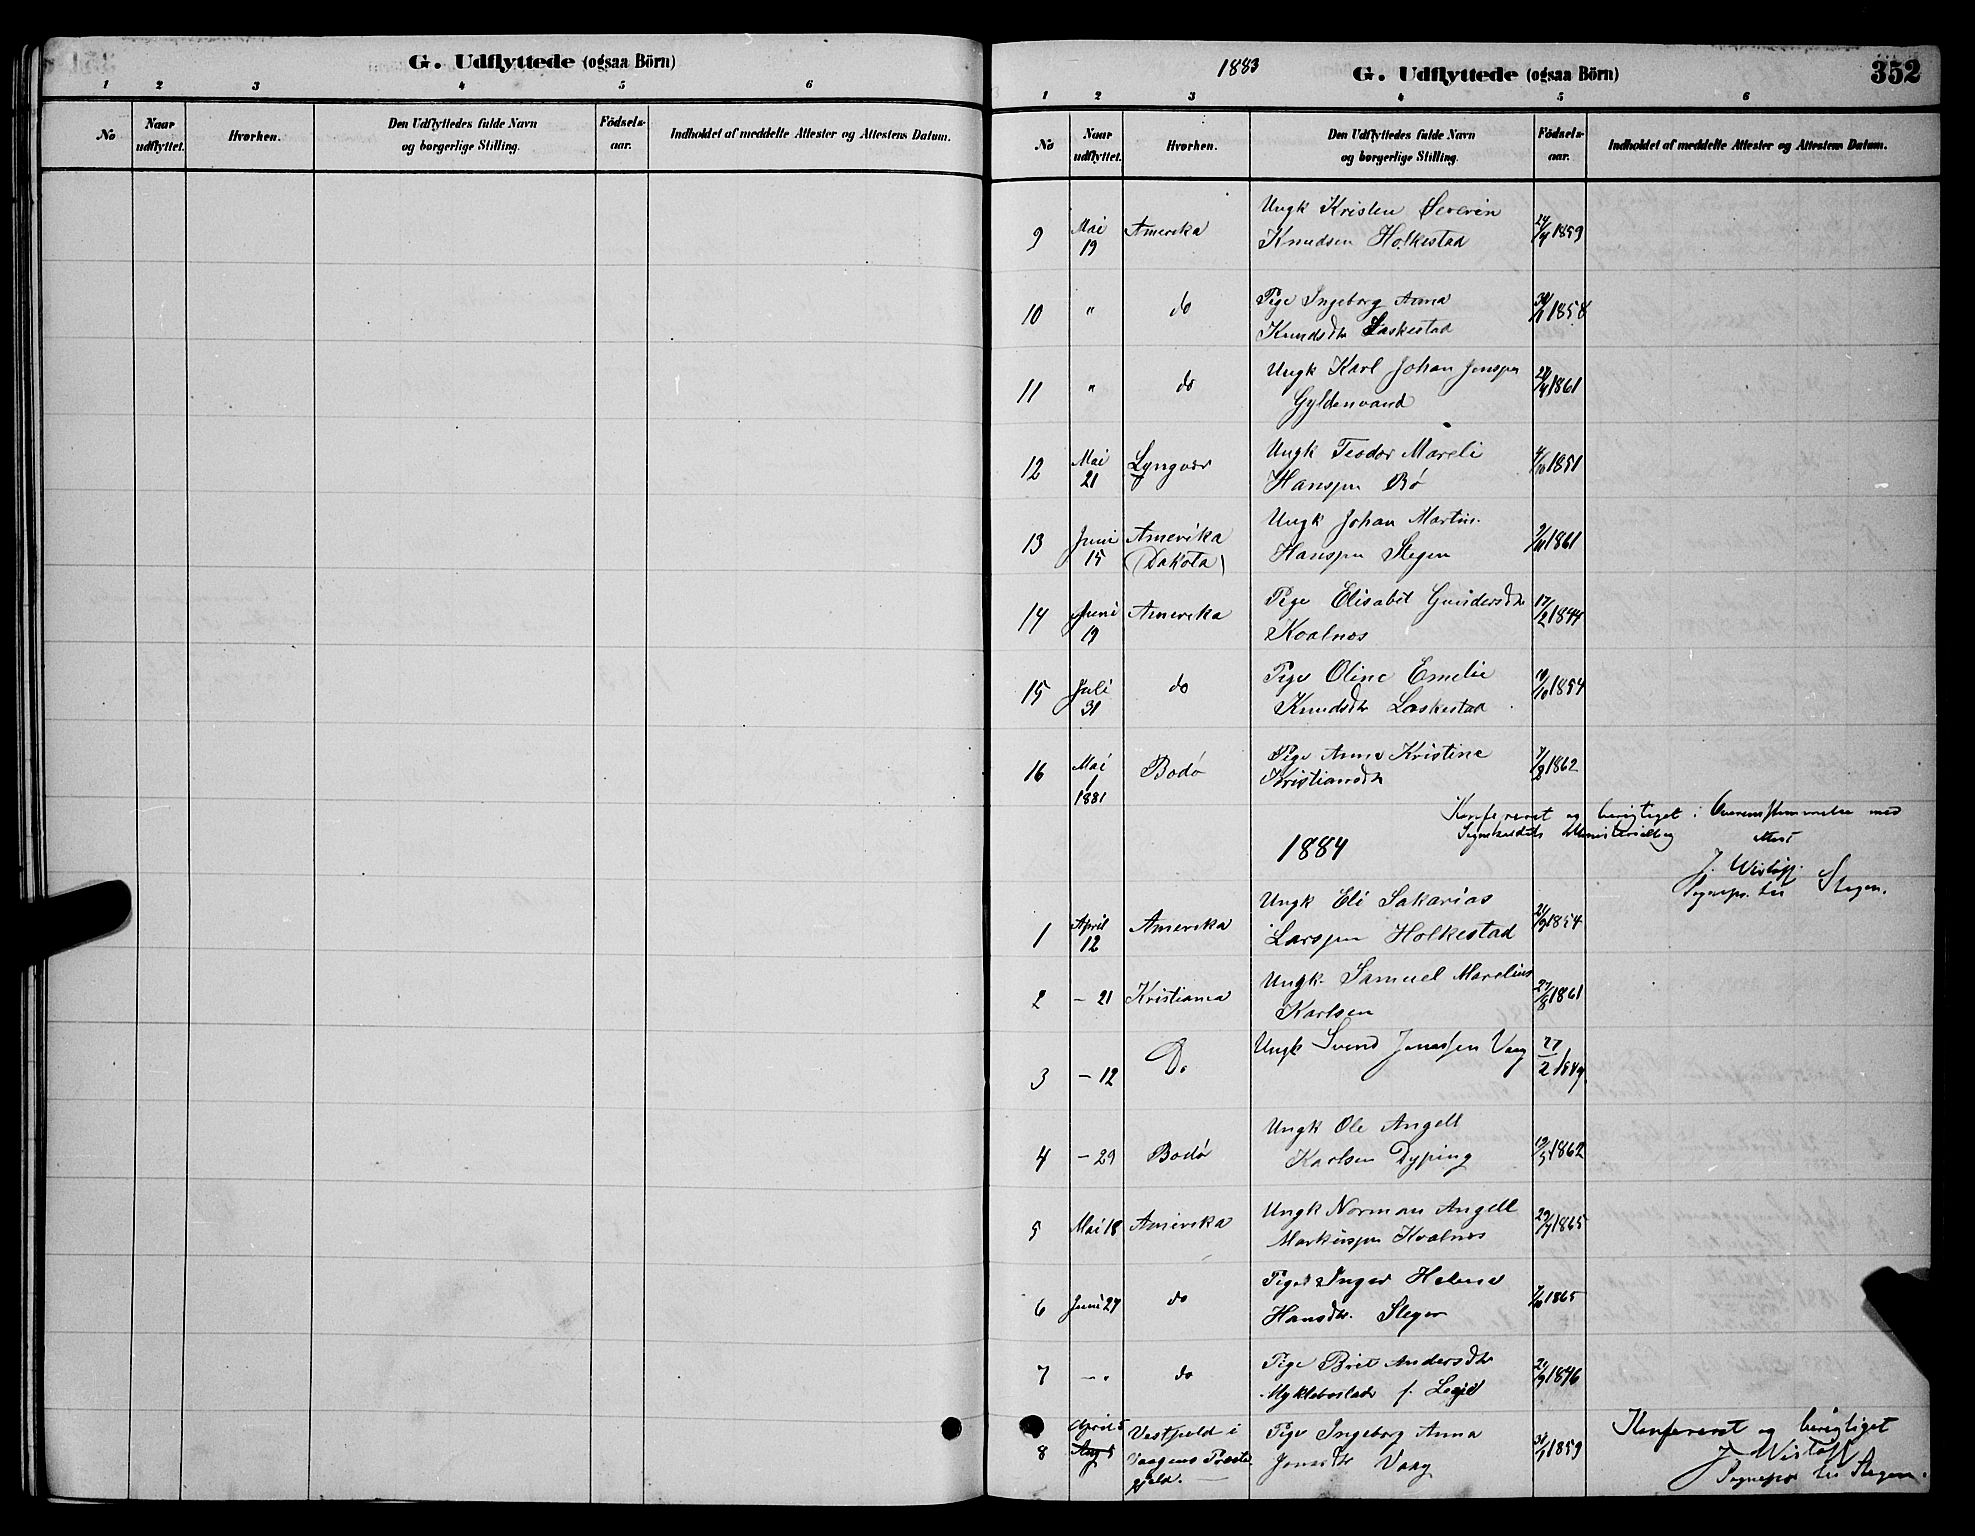 G. Udflyttede (ogsaa Börn)
1 2 3 4 5 6
No
Naar udflyttet.
Hvorhen.
Den Udflyttedes fulde Navn og borgerlige Stilling.
Födsels-aar.
Indholdet af meddelte Attester og Attestens Datum.
1883 G. Udflyttede (ogsaa Börn) 352
1 2 3 4 5 6
No
Naar udflyttet.
Hvorhen.
Den Udflyttedes fulde Navn og borgerlige Stilling.
Födsels-aar.
Indholdet af meddelte Attester og Attestens Datum.
Ungk Kristen Severin
9 Mai 19 Amerika Knudsen Holkestad 1859
Pige Ingeborg Anna
10 " do Knudsdtr Laskestad 1858
Ungk Karl Johan Jenssen
11 " do Gyldenvand 1861
Ungk Teodor Mareli
12 Mai 21 Lyngvær Hanssen Bø 1851
Ungk Johan Martin
13 Juni 15 Amerika (Dakota) Hanssen Stegen 1861
Pige Elisabet Gundersdtr
14 Juni 19 Amerika Kvalnes 17/2 1844
Pige Oline Emelie
15 Juli 31 do Knudsdtr Laskestad 19/10 1854
Pige Anna Kristine
16 Mai 1 1881 Bodø Kristiansdtr 1862
Konfereret og berigtiget i Overensstemmelse med
Sognekaldets Ministerialbog
attest
J. Wisløff.
Sognepr. til Stegen.
1884
Ungk Eli Sakarias
1 April 12 Amerika Larssen Holkestad 1854
Ungk. Samuel Marelius
2 - 21 Kristiania Karlsen 27/8 1861
Ungk Svend Jenssen Vaag
3 - 12 Do 27/2 1849
Ungk Ole Angell
4 - 29 Bodø Karlsen Dyping 19/5 1862
Ungk Norman Angell
5 Mai 18 Amerika Markussen Kvalnes 1865
Pige Inger Helena
6 Juni 27 do Hansdtr. Stegen 1865
Pige Brit Andersdtr
7 - " do Myklebostad f. 1846
8 April 5 Aug 5 Vestfjeld i Vaagens Præstegjeld. Pige Ingeborg Anna Jonasdtr Vaag 1859
Konfereret og berigtiget
J. Wisløff
Sognepr til Stegen.